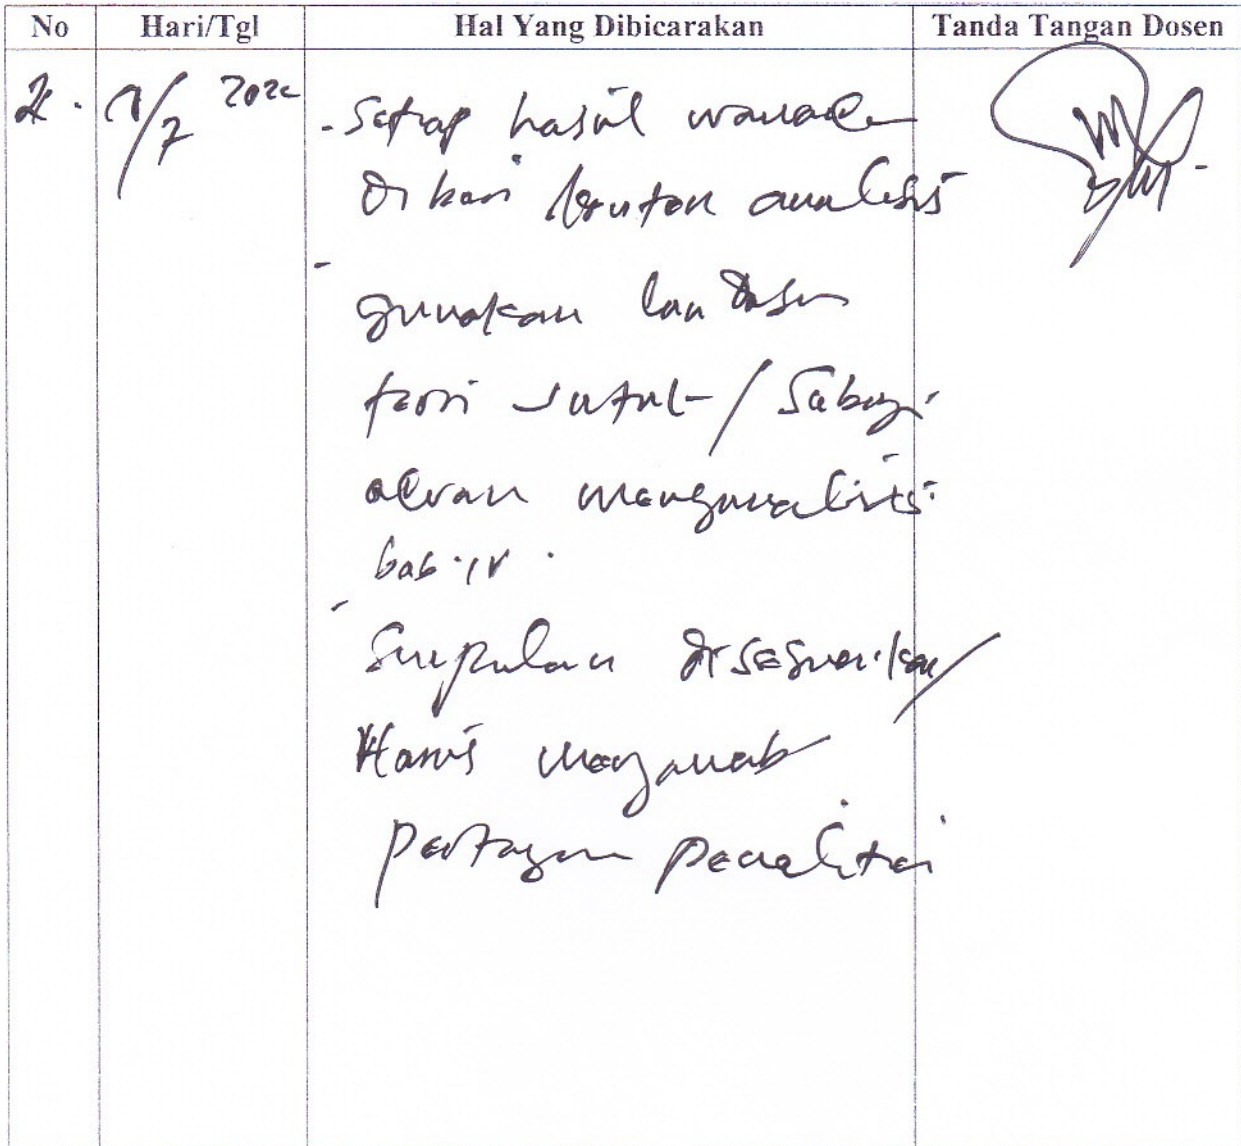 No Hari/Tgl Hal Yang Dibicarakan Tanda Tangan Dosen
2. 1/7 2022 - Setiap hasil
di beri analisis
- gunakan landasan
teori untuk / Sebagai
acuan menganalisis
bab IV.
- Simpulan disesuaikan /
Harus menjawab
pertanyaan penelitian